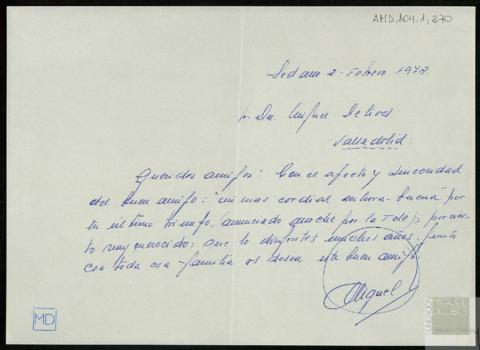 AMD,104,1,270
Sedano 2 - Febrero 1978.
Sr. Dn. Miguel Delibes
Valladolid.
Queridos amigos: Con el afecto y sinceridad
del buen amigo: "mi mas cordial enhora-buena" por
tu último triunfo, anunciado anoche por la Tele, por cier-
to muy merecido; que lo disfrutes muchos años, junto
con toda esa familia os desea este buen amigo.
Miguel
MD
FUNDACIÓN
MIGUEL
DELIBES